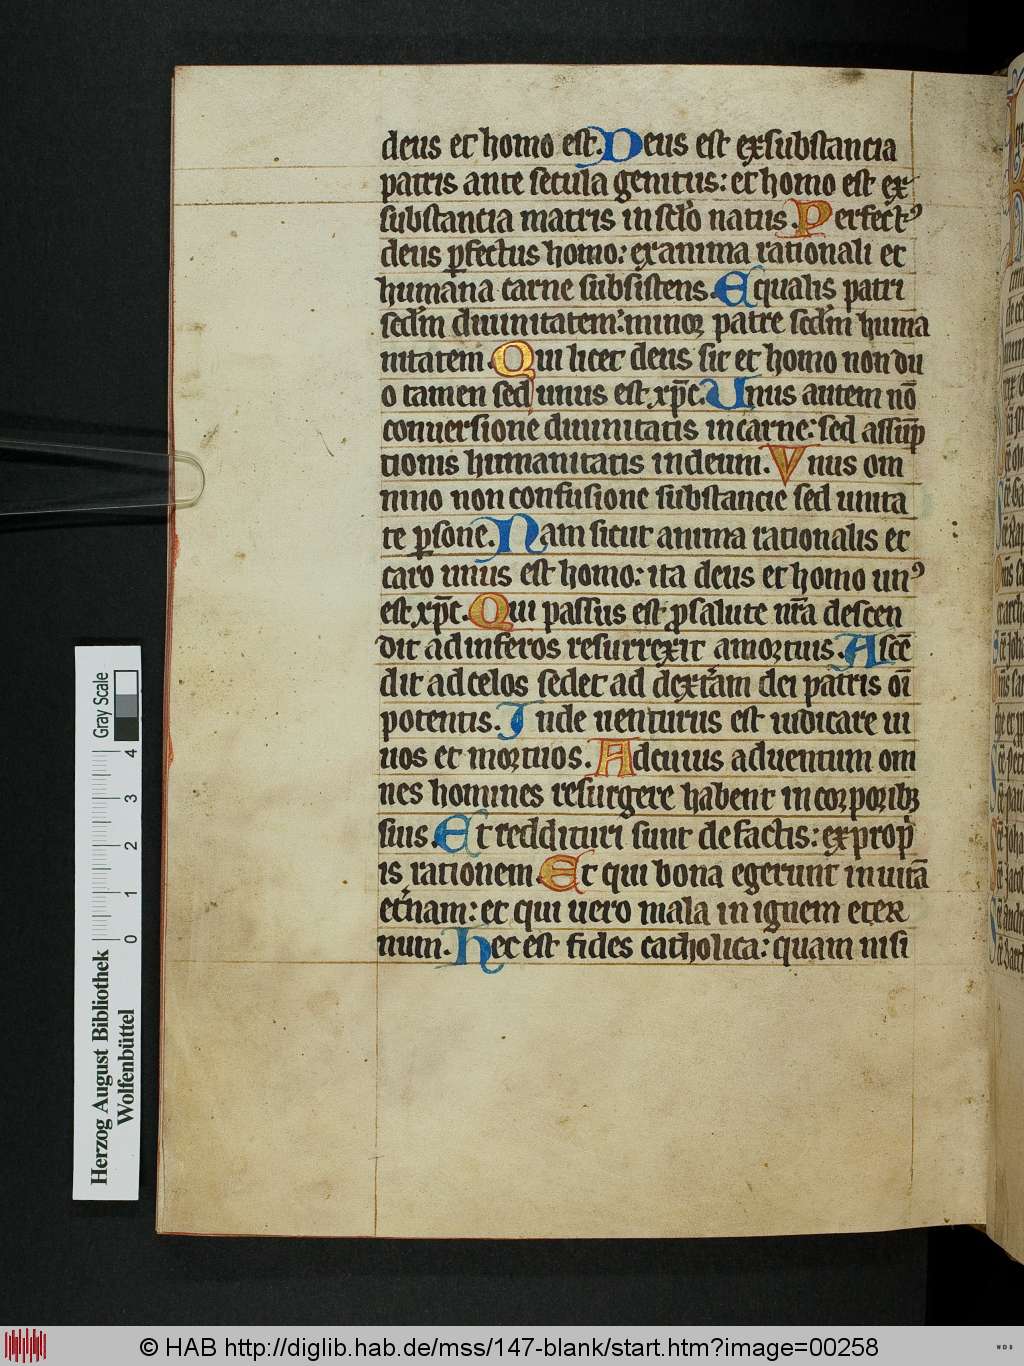 deus et homo est. Deus est exsubstancia
patris ante secula genitus: et homo est ex
substancia matris in sc̄lo natus. Perfectꝰ
deus ꝑfectus homo: ex anima rationali et
humana carne subsistens. Equalis patri
scd̄m diuinitatem: minoꝛ patre scd̄m huma
nitatem. Qui licet deus sit et homo non du
o tamen sed unus est xp̄c. Unus autem nō
conuersione diuinitatis in carne: sed assūp
tionis humanitatis in deum. Vnus om
nino non confusione substancie sed unita
te ꝑsone. Nam sicut anima rationalis et
caro unus est homo: ita deus et homo unꝰ
est xp̄c. Qui passus est ꝓ salute nr̄a descen
dit ad inferos resurrexit a moꝛtuis. Ascē
dit ad celos sedet ad dext̄am dei patris oī
potentis. Inde uenturus est iudicare ui
uos et moꝛtuos. Ad cuius aduentum om
nes homines resurgere habent in coꝛpoꝛibꝫ
suis. Et reddituri sunt de factis: ex propͥ
is rationem. Et qui bona egerunt in uitā
et̄nam: et qui uero mala in ignem eter
num. Hec est fides catholica: quam nisi
Herzog August Bibliothek
Wolfenbüttel
0 1 2 3 4
Gray Scale
© HAB http://diglib.hab.de/mss/147-blank/start.htm?image=00258